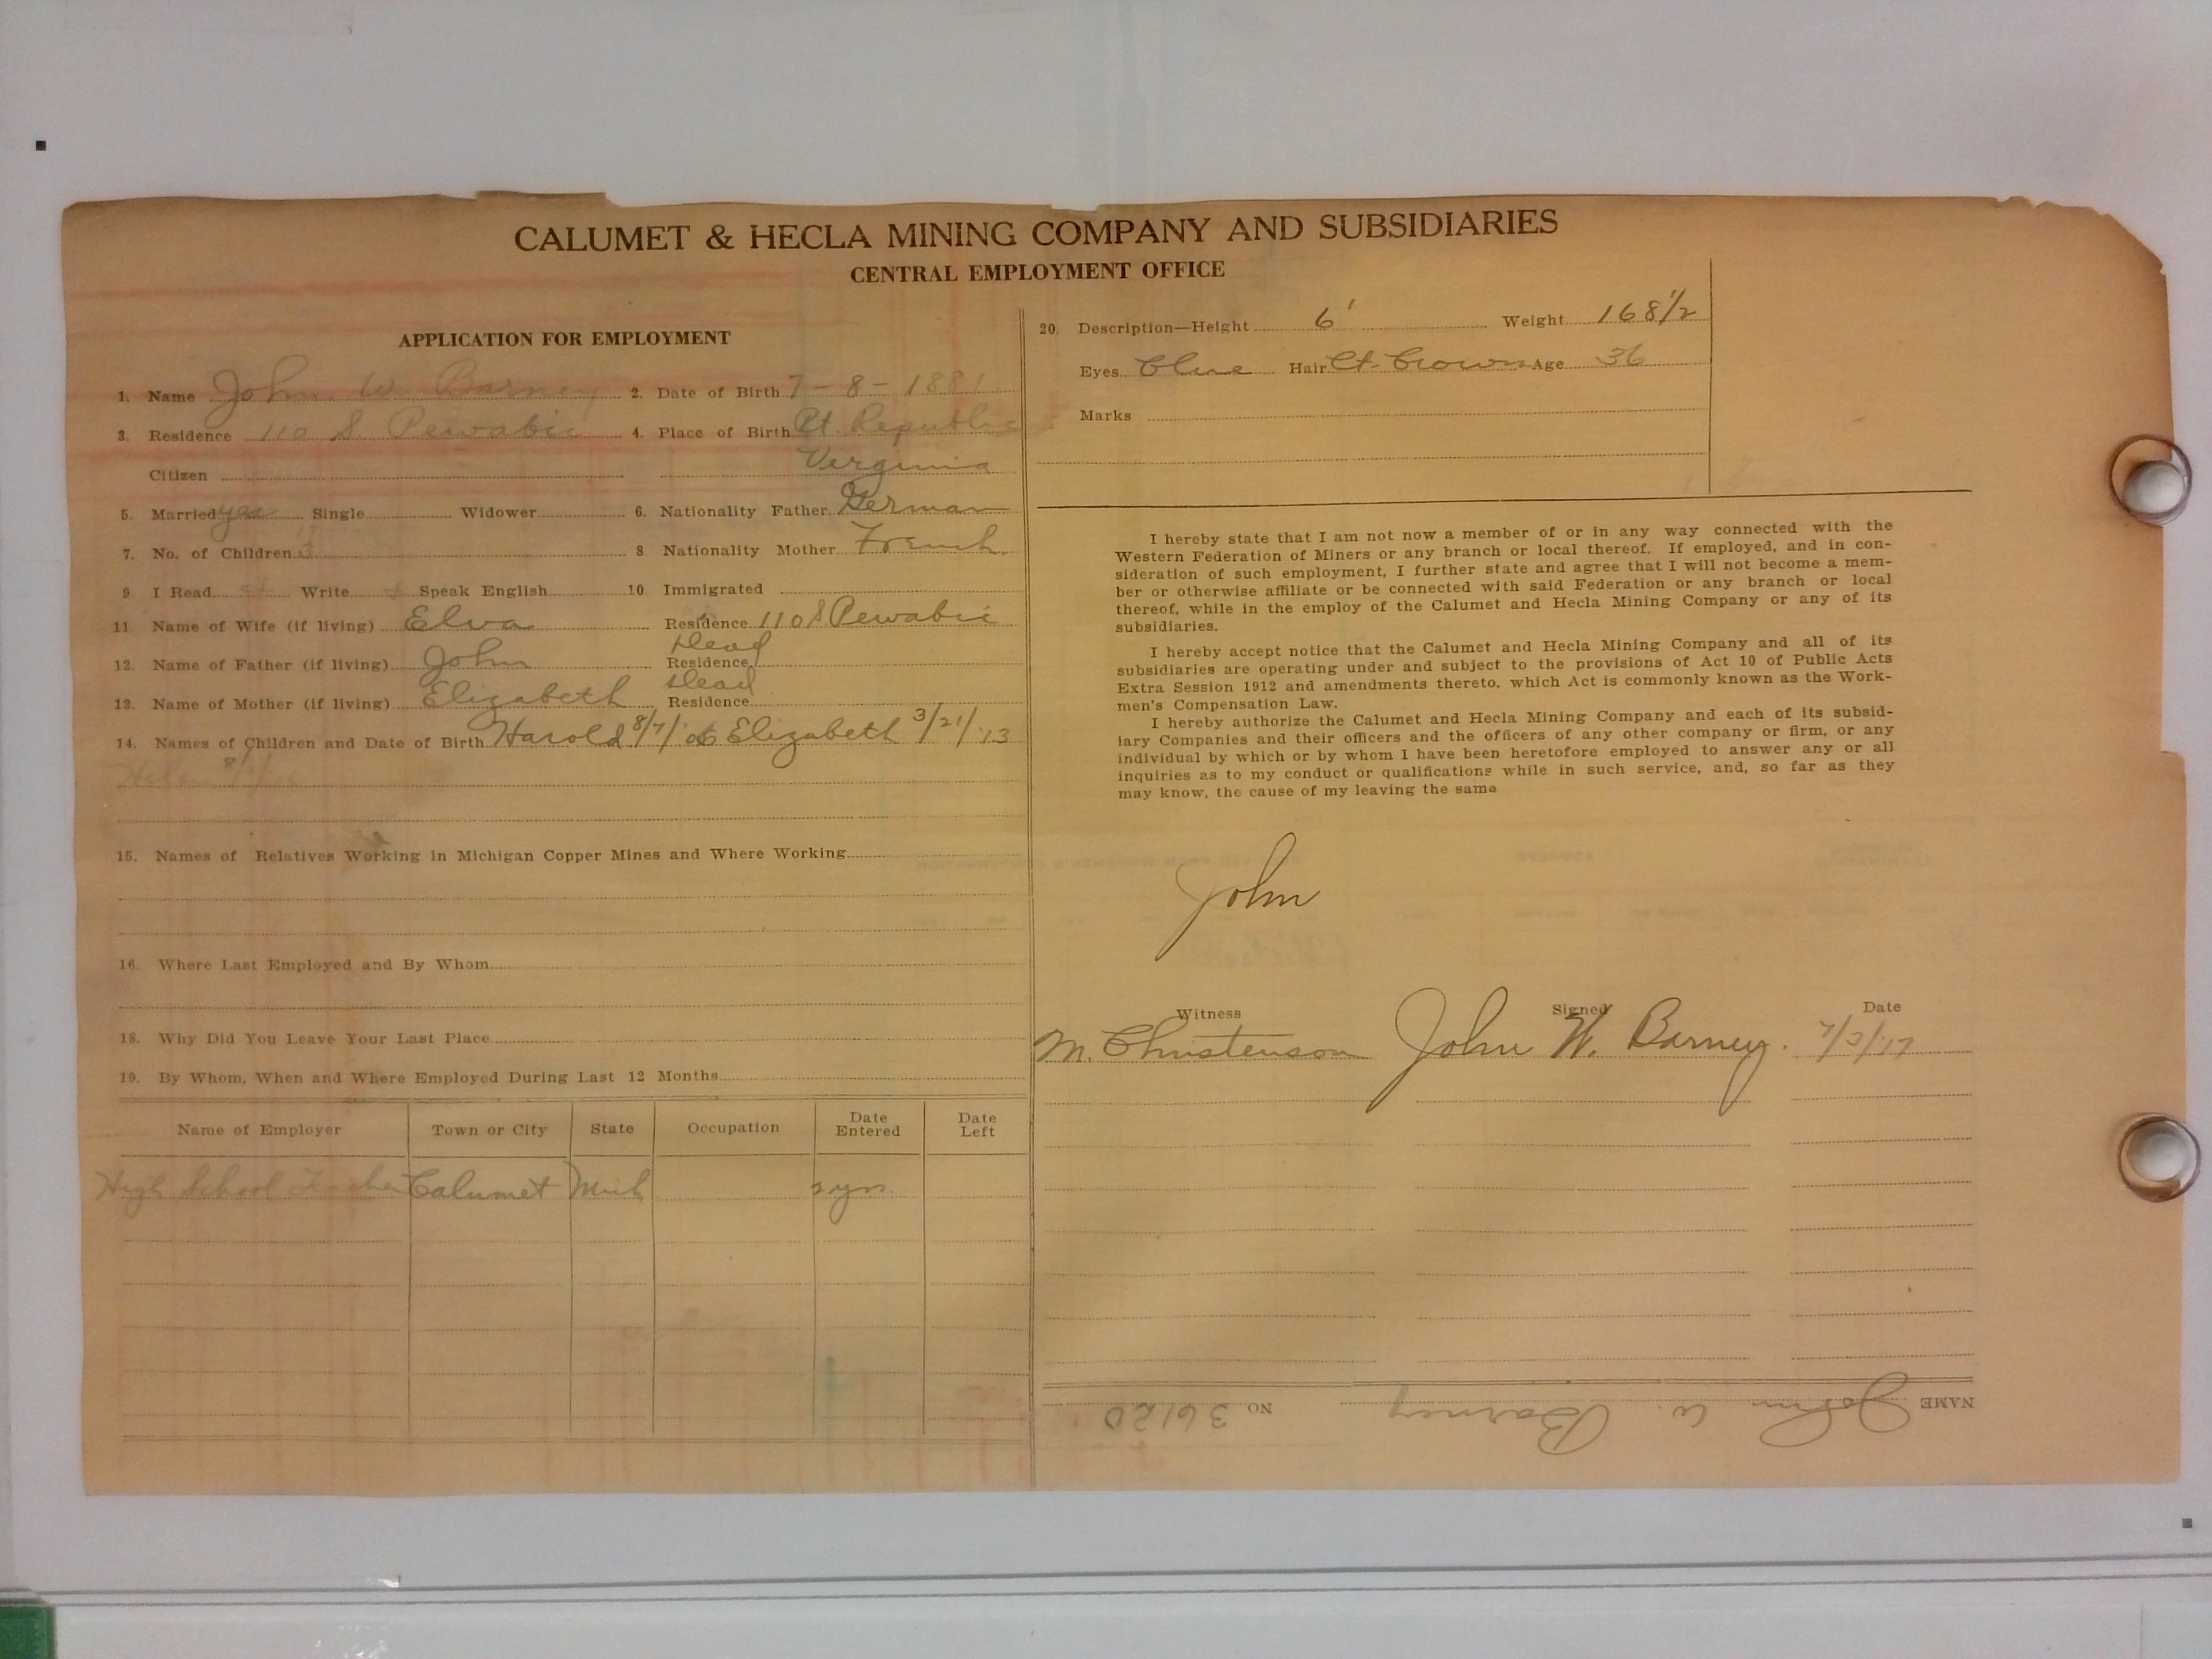 CALUMET & HECLA MINING COMPANY AND SUBSIDIARIES
CENTRAL EMPLOYMENT OFFICE
APPLICATION FOR EMPLOYMENT
1. Name John W Barney 2. Date of Birth 7-8-1881
3. Residence 110 S. Pewabic 4. Place of Birth Pt. Republic
Citizen Verginia
5. Married yes Single Widower 6. Nationality Father German
7. No. of Children 3 8 Nationality Mother French
9 I Read Write Speak English 10 Immigrated
11. Name of Wife (if living) Elva Residence 110 S Pewabic
12. Name of Father (if living) John Residence Dead
13. Name of Mother (if living) Elizabeth Residence Dead
14. Names of Children and Date of Birth Harold 8/7/'06 Elizabeth 3/21/'13
Helen
15. Names of Relatives Working in Michigan Copper Mines and Where Working
16. Where Last Employed and By Whom
18. Why Did You Leave Your Last Place
19. By Whom, When and Where Employed During Last 12 Months
Name of Employer Town or City State Occupation Date Entered Date Left
High School Teacher Calumet Mich yrs.
20. Description—Height 6' Weight 168 1/2
Eyes Blue Hair Lt. Brown Age 36
Marks
I hereby state that I am not now a member of or in any way connected with the
Western Federation of Miners or any branch or local thereof. If employed, and in con-
sideration of such employment, I further state and agree that I will not become a mem-
ber or otherwise affiliate or be connected with said Federation or any branch or local
thereof, while in the employ of the Calumet and Hecla Mining Company or any of its
subsidiaries.
I hereby accept notice that the Calumet and Hecla Mining Company and all of its
subsidiaries are operating under and subject to the provisions of Act 10 of Public Acts
Extra Session 1912 and amendments thereto, which Act is commonly known as the Work-
men's Compensation Law.
I hereby authorize the Calumet and Hecla Mining Company and each of its subsid-
iary Companies and their officers and the officers of any other company or firm, or any
individual by which or by whom I have been heretofore employed to answer any or all
inquiries as to my conduct or qualifications while in such service, and, so far as they
may know, the cause of my leaving the same
John
Witness Signed Date
M. Christenson John W. Barney. 7/3/17
NAME John W Barney NO 36120